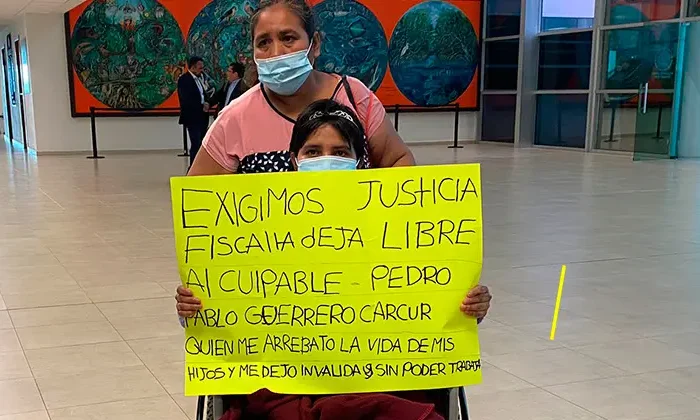 EXIGIMOS JUSTICIA
FISCALIA dEJA LIBRE
Al CUlPABLE - PEDRO
PABLO GUERRERO CARCUR
QUIEN ME ARREBATO LA VIDA DE MIS
HIJOS Y ME DEJO INVALIDA y SIN POdER TRABAJA